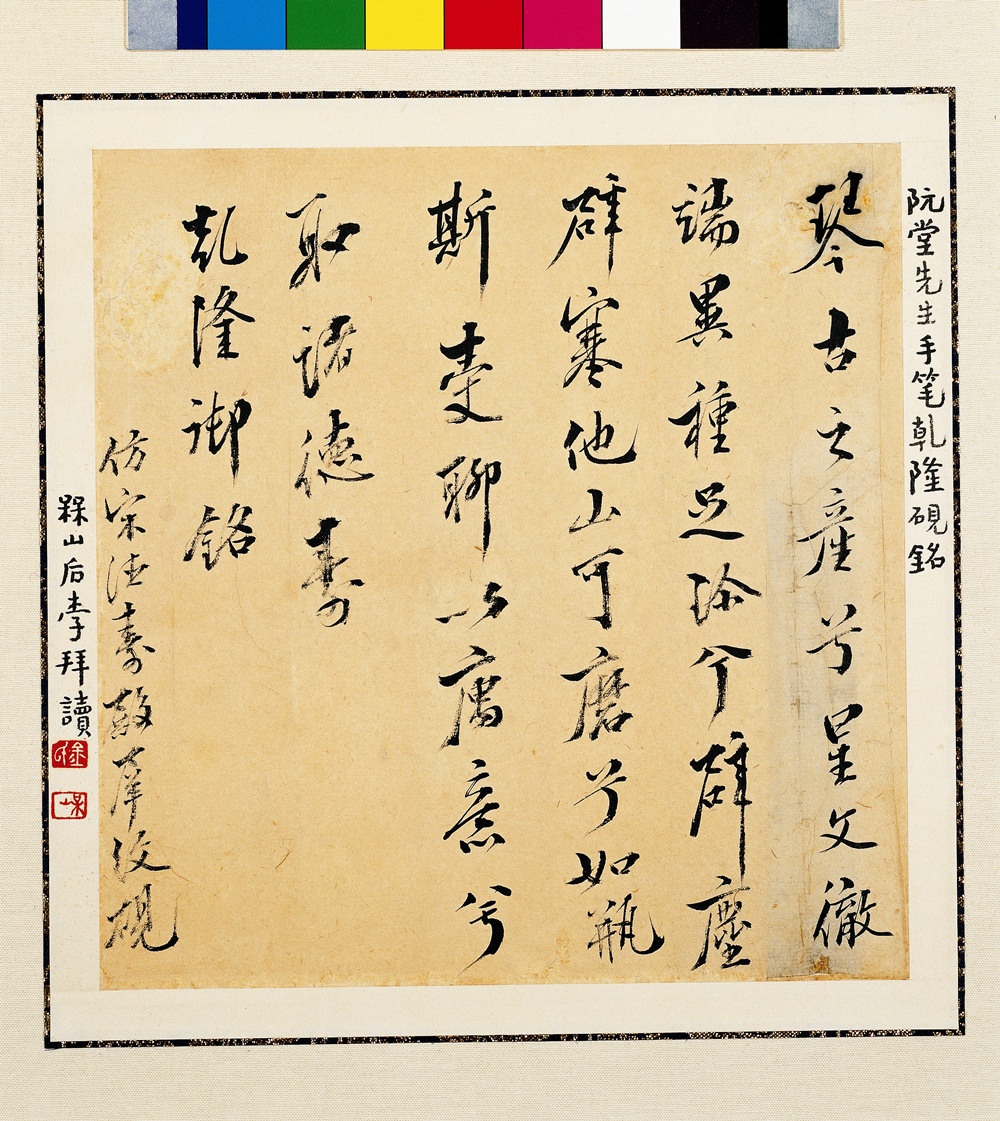 阮堂先生手笔乾隆硯銘
琴古之產兮星文徹
端異種足珍兮辟塵
辟寒他山可磨兮如瓶
斯聊以寓意兮
取諸德壽
乾隆御銘
仿宋德壽殿犀紋硯
槑山后學拜讀